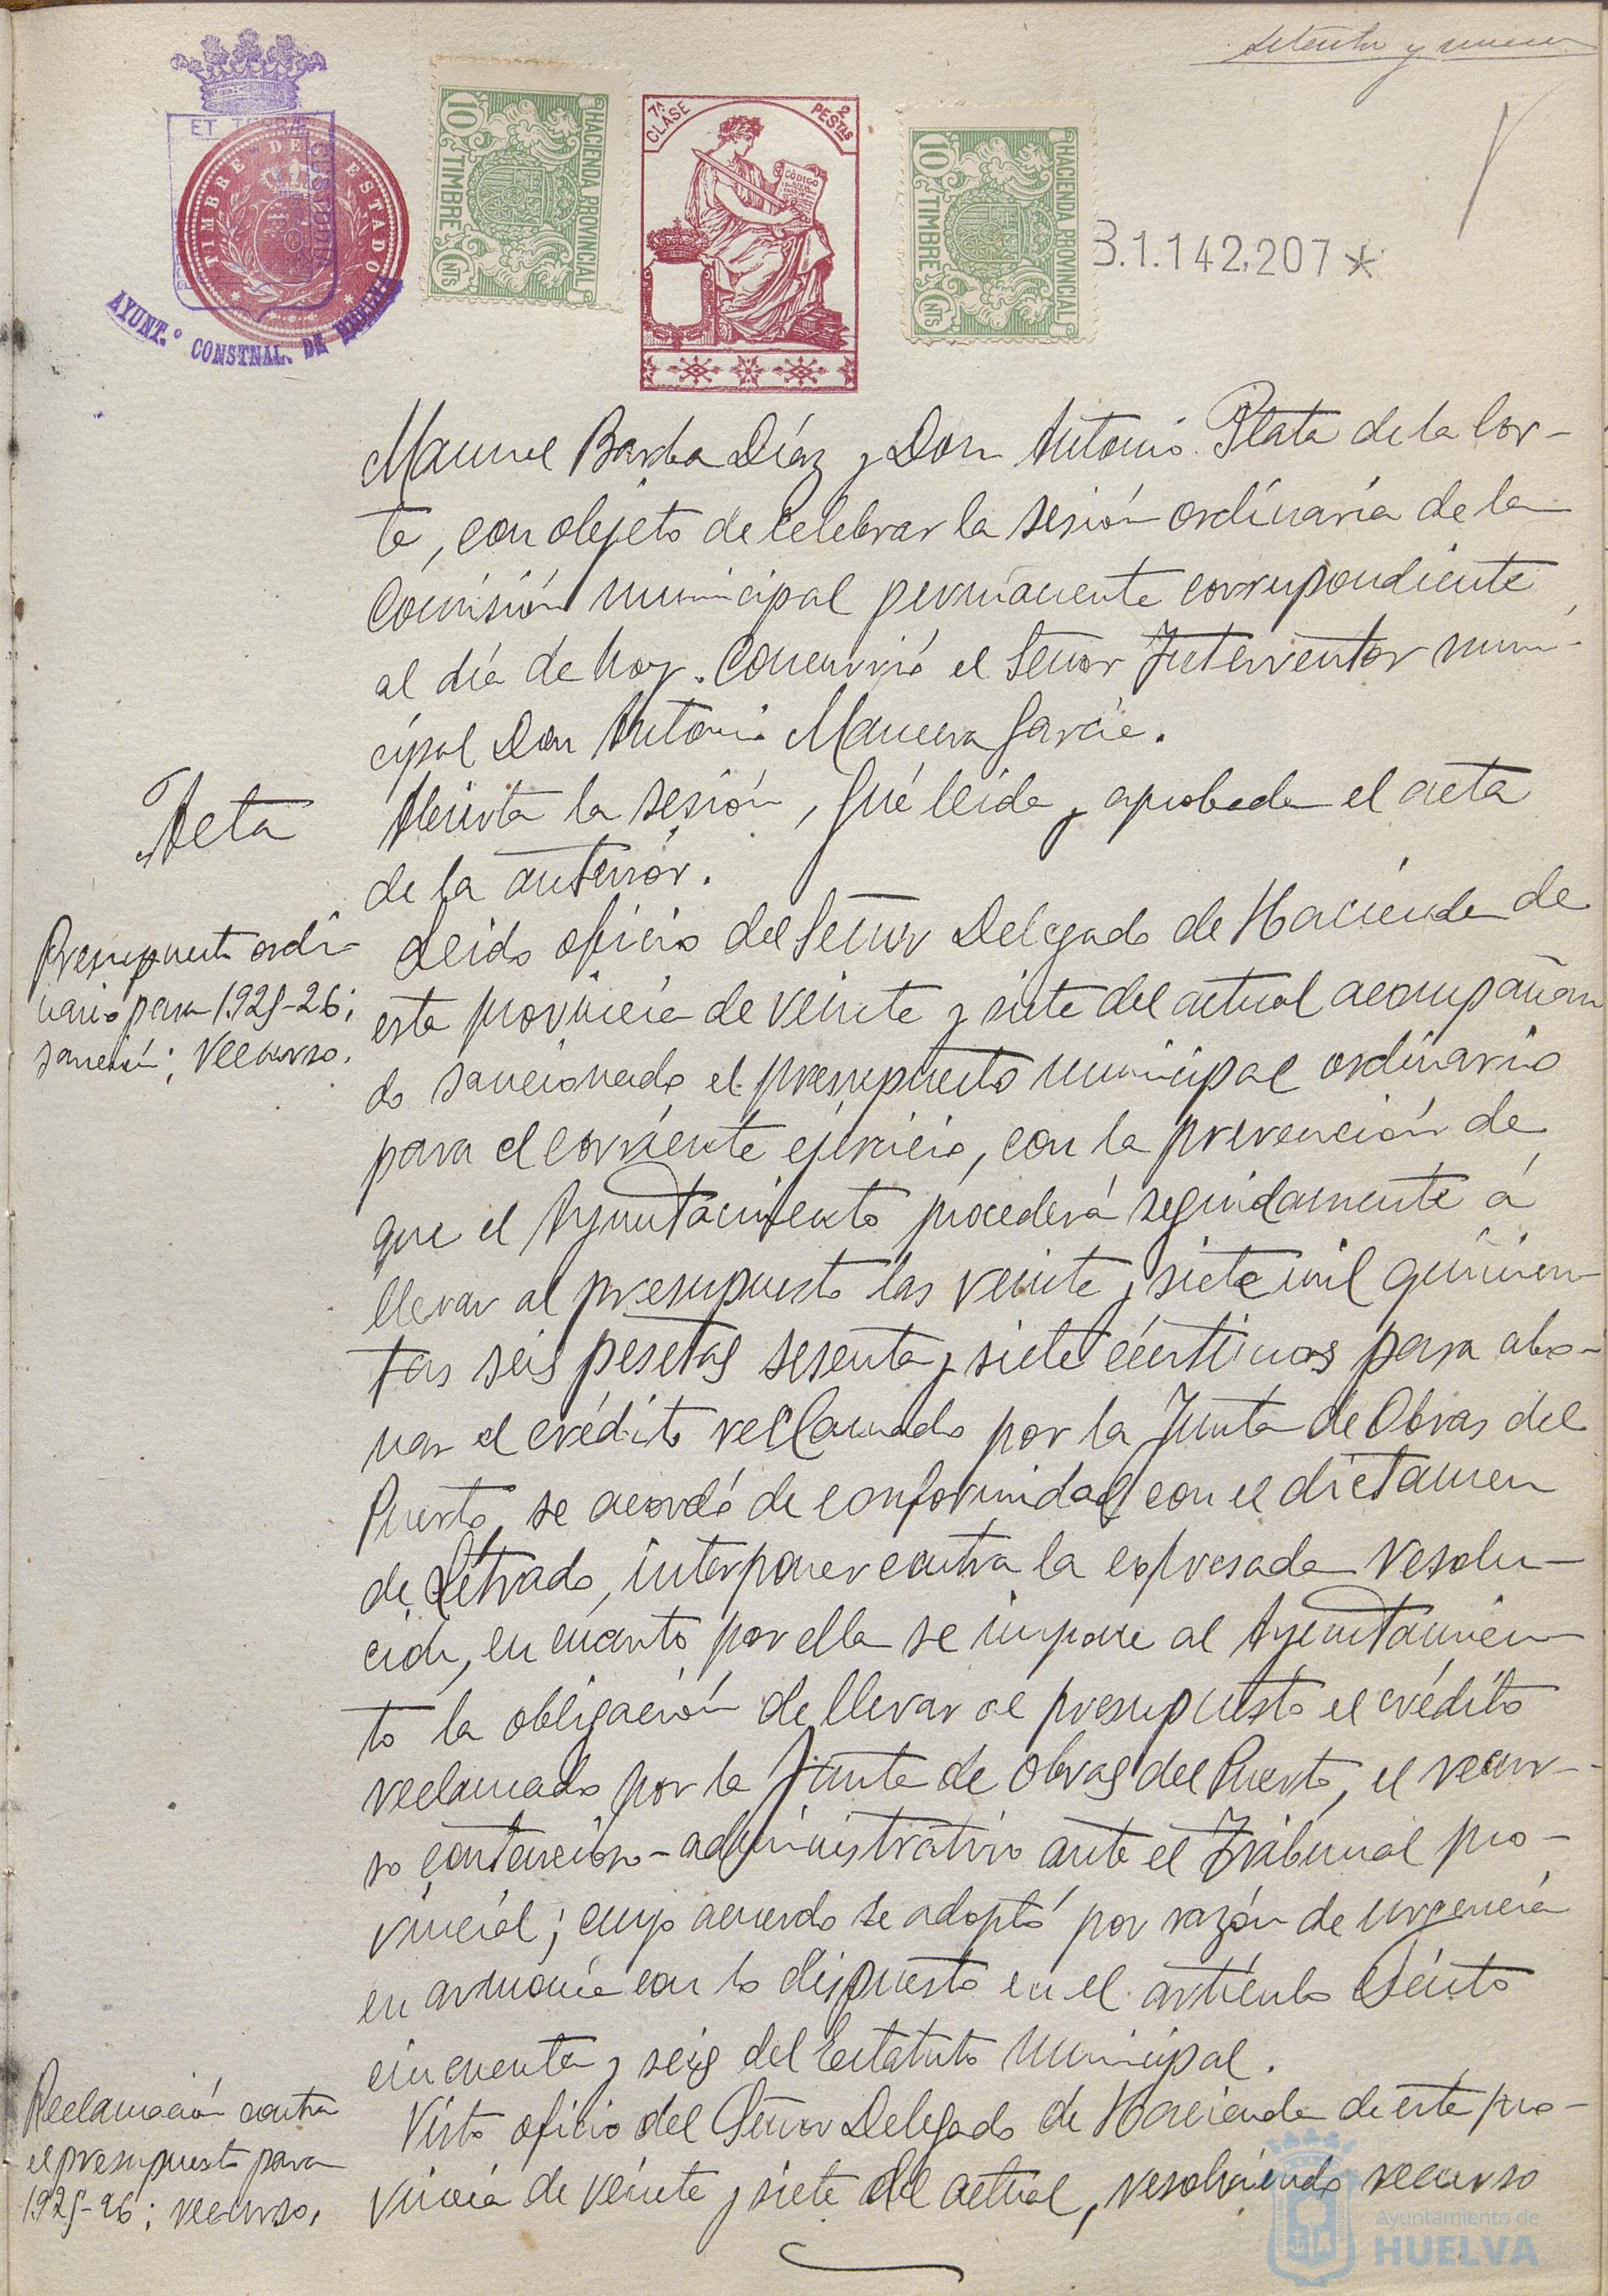 setenta y nueve
ET TERRÆ
CUSTODIA
TIMBRE DEL ESTADO
AYUNT.º CONSTNAL. DE HUELVA
10 TIMBRE CNTS
HACIENDA PROVINCIAL
7ª CLASE
2 PESTAS
CÓDIGO
10 TIMBRE CNTS
HACIENDA PROVINCIAL
B.1.142,207*
Manuel Barba Díaz y Don Antonio Plata de la Cor-
te, con objeto de celebrar la sesión ordinaria de la
Comisión municipal permanente correspondiente
al día de hoy. Concurrió el Señor Interventor muni-
cipal Don Antonio Mancera García.
Acta
Abierta la sesión, fué leida y aprobada el acta
de la anterior.
Presupuesto ordi-
nario para 1925-26;
sanción; recurso.
Leido oficio del Señor Delegado de Hacienda de
esta provincia de veinte y siete del actual acompañan
do sancionado el presupuesto municipal ordinario
para el corriente ejercicio, con la prevención de
que el Ayuntamiento procederá seguidamente á
llevar al presupuesto las veinte y siete mil quinien-
tas seis pesetas sesenta y siete céntimos para abo-
nar el crédito reclamado por la Junta de Obras del
Puerto, se acordó de conformidad con el dictamen
de Letrado, interponer contra la expresada resolu-
ción, en cuanto por ella se impone al Ayuntamien-
to la obligación de llevar al presupuesto el crédito
reclamado por la Junta de Obras del Puerto, el recur-
so contencioso-administrativo ante el Tribunal pro-
vincial; cuyo acuerdo se adoptó por razón de urgencia
en armonía con lo dispuesto en el artículo ciento
cincuenta y seis del Estatuto Municipal.
Reclamación contra
el presupuesto para
1925-26; recurso.
Visto oficio del Señor Delegado de Hacienda de esta pro-
vincia de veinte y siete del actual, resolviendo recurso
Ayuntamiento de
HUELVA